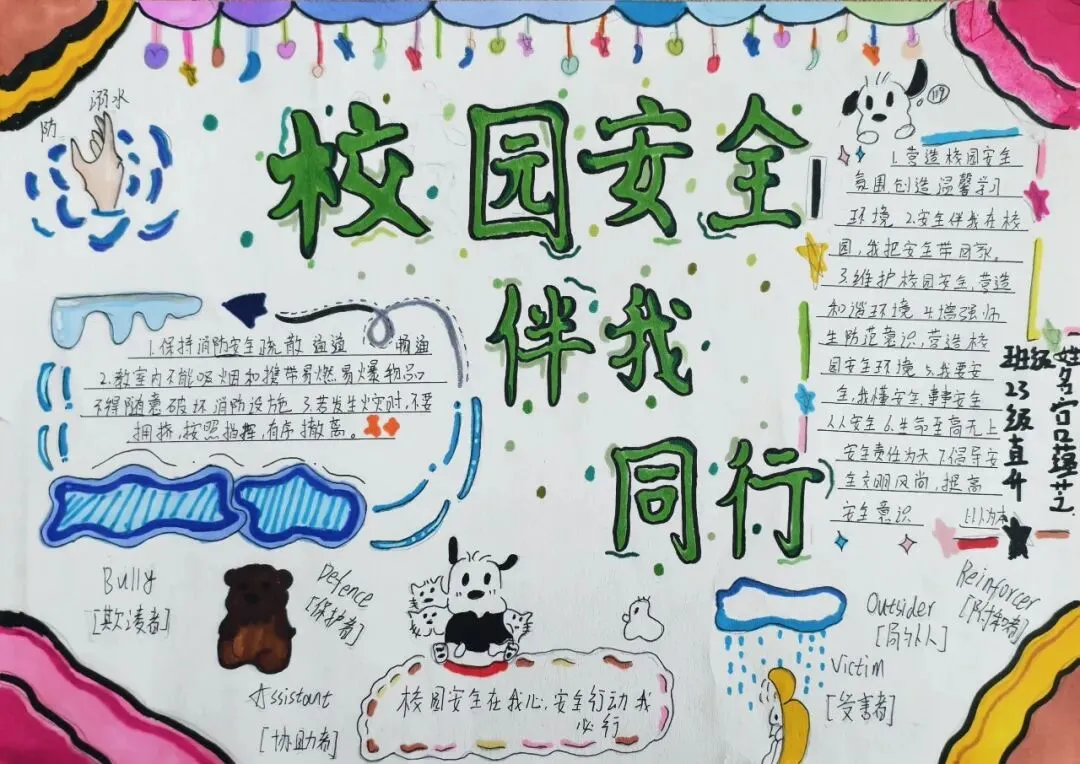 防
溺水
校园安全
伴我
同行
119
1.营造校园安全
氛围,创造温馨学习
环境 2.安全伴我在校
园,我把安全带回家。
3.维护校园安全,营造
和谐环境 4.增强师
生防范意识,营造校
园安全环境 5.我要安
全,我懂安全,事事安全
人人安全 6.生命至高无上
安全责任为天 7.倡导安
全文明风尚,提高
安全意识 以人为本
班级23级直升
姓名
1.保持消防安全疏散通道 畅通
2.教室内不能吸烟和携带易燃易爆物品
不得随意破坏消防设施 3.若发生火灾时,不要
拥挤,按照指挥,有序撤离。
Bully
[欺凌者]
Defence
[保护者]
Assistant
[协助者]
校园安全在我心,安全行动我
必行
Outsider
[局外人]
Reinforcer
[附和者]
Victim
[受害者]